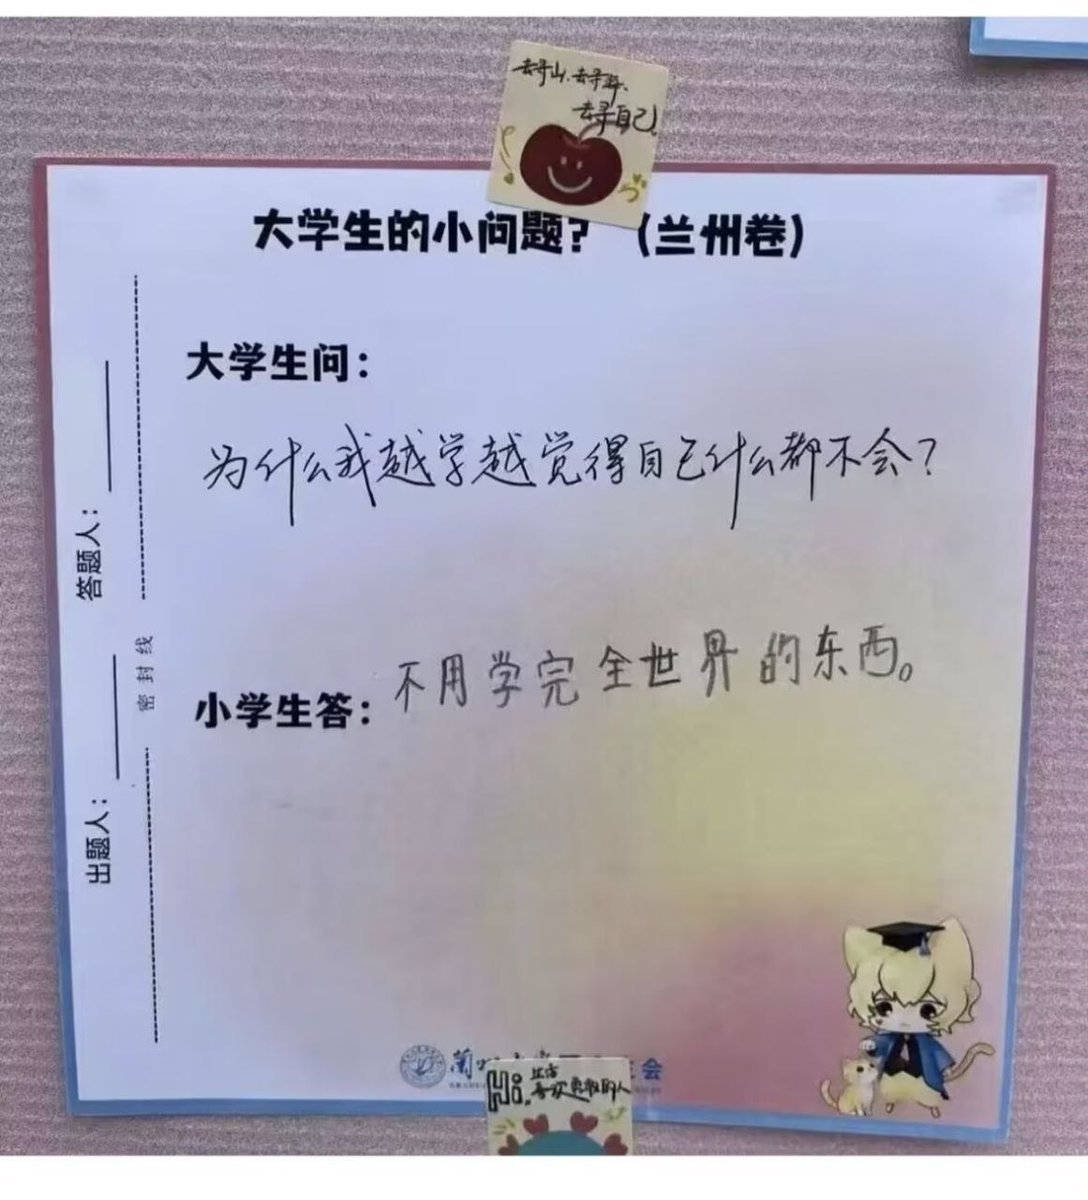 去寻山、去寻海、
去寻自己!
大学生的小问题?(兰州卷)
大学生问:
为什么我越学越觉得自己什么都不会?
小学生答:不用学完全世界的东西。
答题人:
密封线
出题人:
会
Hi,